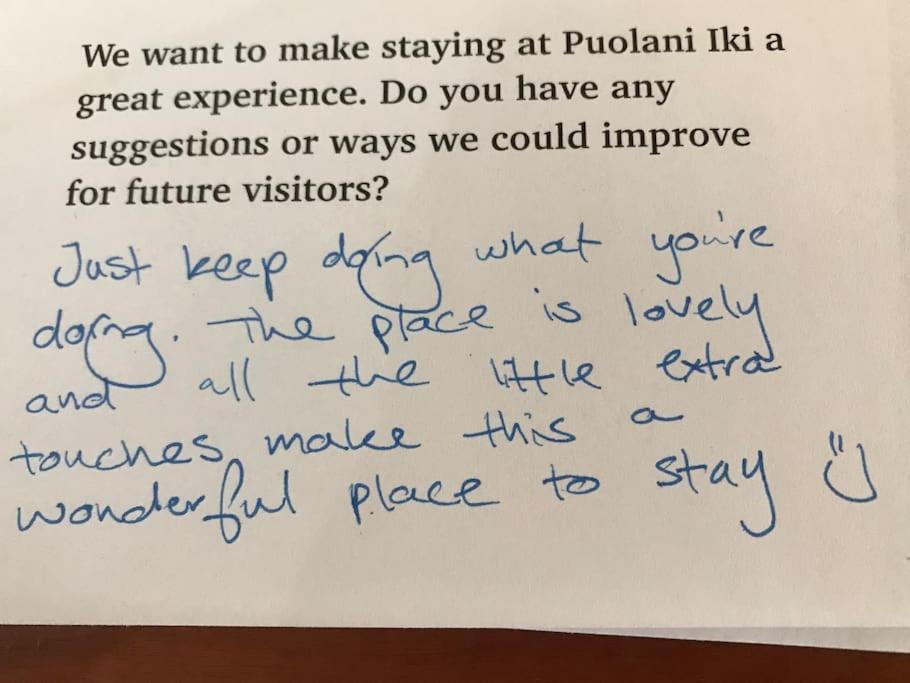 We want to make staying at Puolani Iki a
great experience. Do you have any
suggestions or ways we could improve
for future visitors?
Just keep doing what you're
doing. The place is lovely
and all the little extra
touches make this a
wonderful place to stay :)